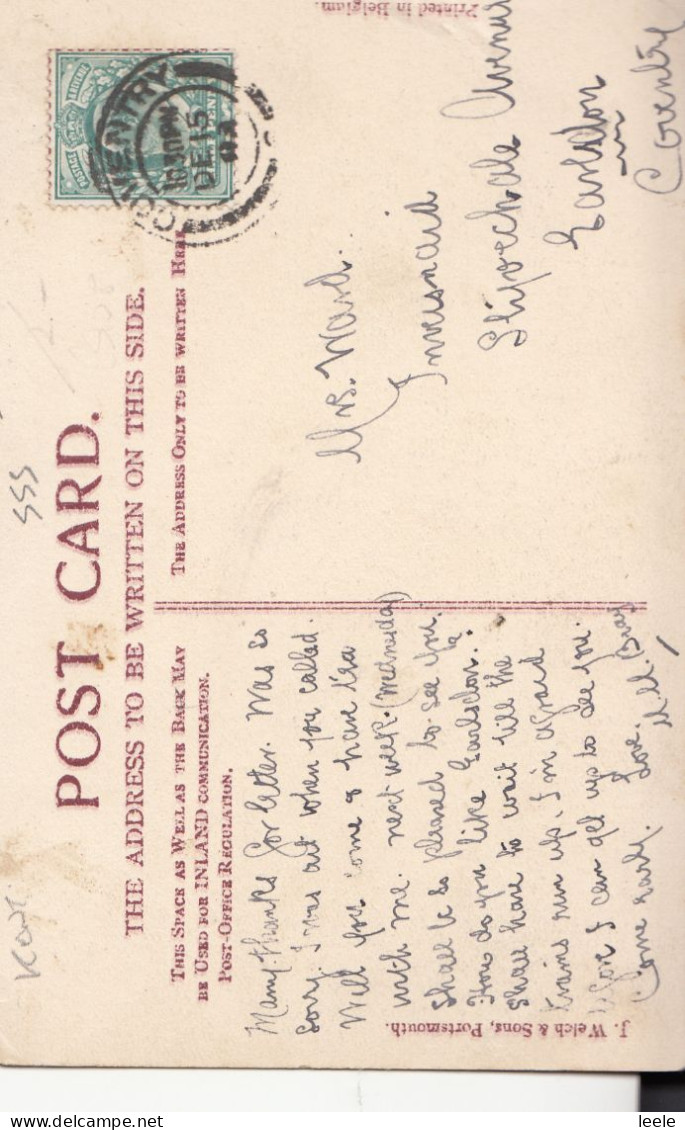 POST CARD.
THE ADDRESS TO BE WRITTEN ON THIS SIDE.
THIS SPACE AS WELL AS THE BACK MAY
BE USED FOR INLAND COMMUNICATION.
POST-OFFICE REGULATION.
THE ADDRESS ONLY TO BE WRITTEN HERE
Many thanks for letter. Was so
sorry I was out when you called.
Will you come & have tea
with me next week. (Wednesday)
Shall be so pleased to see you.
How do you like Earlsdon.
Shall have to wait till the
trams run up, I'm afraid
before I can get up to see you.
Come early. Love.
Mrs. Ward.
Inversnaid
Avenue
Earlsdon
Coventry
J. Welch & Sons, Portsmouth.
Printed in Belgium.
POSTAGE
COVENTRY
10.30PM
DE 15
03
Kent.
555
leele